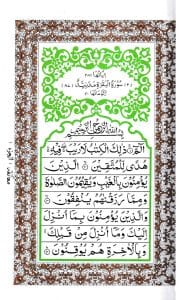 اٰیَاتُهَا ٢٨٦
(٢) سُوْرَةُ الْبَقَرَةِ مَدَنِيَّةٌ (٨٧)
بِسْمِ اللهِ الرَّحْمٰنِ الرَّحِيْمِ
الٓمّٓ ذٰلِكَ الْكِتٰبُ لَا رَيْبَ فِيْهِ
هُدًى لِّلْمُتَّقِيْنَ الَّذِيْنَ
يُؤْمِنُوْنَ بِالْغَيْبِ وَيُقِيْمُوْنَ الصَّلٰوةَ
وَمِمَّا رَزَقْنٰهُمْ يُنْفِقُوْنَ
وَالَّذِيْنَ يُؤْمِنُوْنَ بِمَآ اُنْزِلَ
اِلَيْكَ وَمَآ اُنْزِلَ مِنْ قَبْلِكَ
وَبِالْاٰخِرَةِ هُمْ يُوْقِنُوْنَ